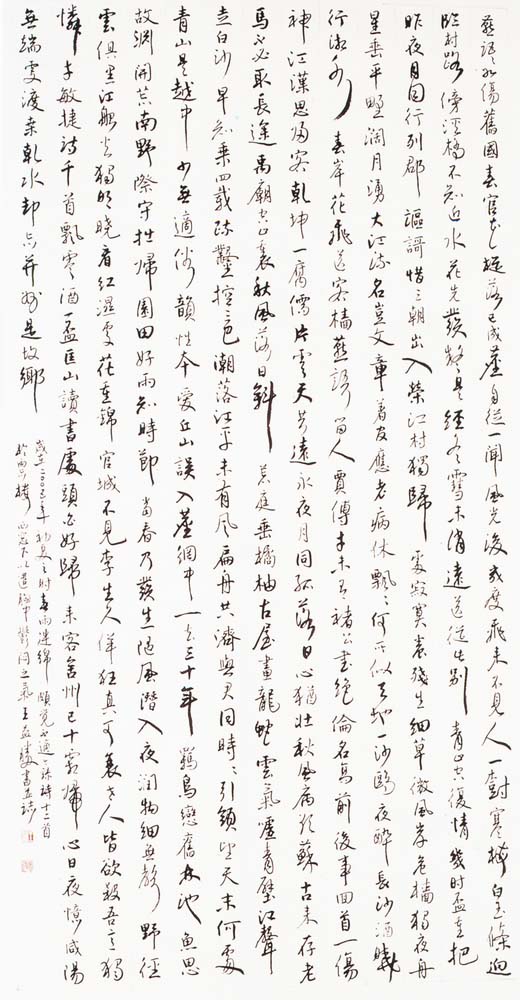 燕語如傷舊國春宮花旋落已成塵自從一閉風光後幾度飛來不見人一樹寒梅白玉條迥
臨村路傍溪橋不知近水花先發疑是經冬雪未消遠送從此別青山空復情幾時盃重把
昨夜月同行列郡謳謌惜三朝出入榮江村獨歸處寂寞養殘生細草微風岸危檣獨夜舟
星垂平野闊月湧大江流名豈文章著官應老病休飄飄何所似天地一沙鷗夜醉長沙酒曉
行湘水春岸花飛送客檣燕語留人賈傅才未有褚公書絕倫名高前後事回首一傷
神江漢思歸客乾坤一腐儒片雲天共遠永夜月同孤落日心猶壯秋風病欲蘇古來存老
馬不必取長途禹廟空山裏秋風落日斜荒庭垂橘柚古屋畫龍蛇雲氣噓青壁江聲
走白沙早知乘四載疏鑿控三巴潮落江平未有風扁舟共濟與君同時時引領望天末何處
青山是越中少無適俗韻性本愛丘山誤入塵網中一去三十年羈鳥戀舊林池魚思
故淵開荒南野際守拙歸園田好雨知時節當春乃發生隨風潛入夜潤物細無聲野徑
雲俱黑江船火獨明曉看紅濕處花重錦官城不見李生久佯狂真可哀世人皆欲殺吾意獨
憐才敏捷詩千首飄零酒一盃匡山讀書處頭白好歸來客舍并州已十霜歸心日夜憶咸陽
無端更渡桑乾水却望并州是故鄉
二00五年初夏之時春雨連綿頗覺不適錄詩十二首
樓西窗下以道胸中鬱悶之氣王書並誌